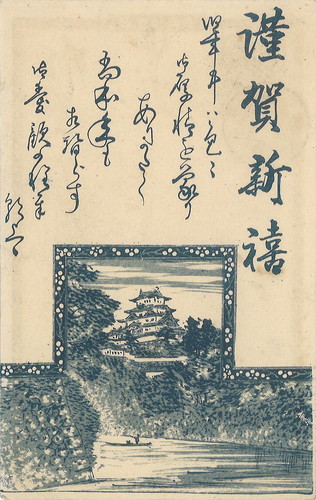 謹賀新禧
昨年中ハ色々
御厚情を蒙り
ありがたく
尚本年も
相替らず
御愛顧の程